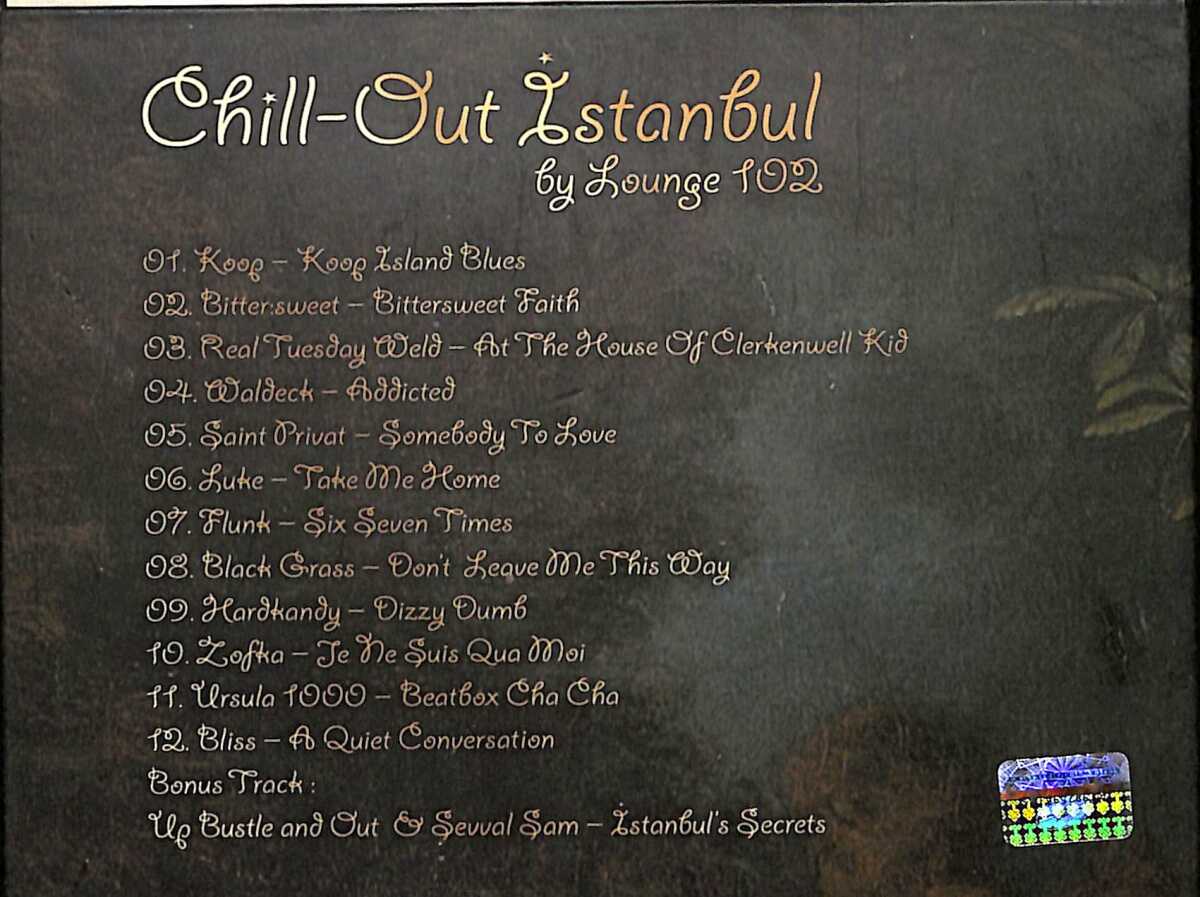 Chill-Out İstanbul
by Lounge 102
01. Koop – Koop Island Blues
02. Bitter:sweet – Bittersweet Faith
03. Real Tuesday Weld – At The House Of Clerkenwell Kid
04. Waldeck – Addicted
05. Saint Privat – Somebody To Love
06. Luke – Take Me Home
07. Flunk – Six Seven Times
08. Black Grass – Don't Leave Me This Way
09. Hardkandy – Dizzy Dumb
10. Zofka – Je Ne Suis Qua Moi
11. Ursula 1000 – Beatbox Cha Cha
12. Bliss – A Quiet Conversation
Bonus Track :
Up Bustle and Out & Sevval Sam – İstanbul's Secrets